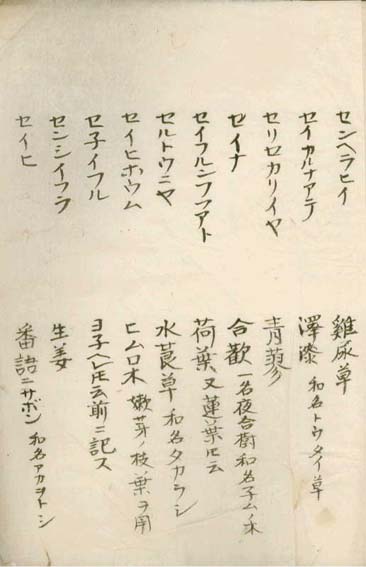 センヘラヒイ 雞尿草
セイカルナアテ 澤漆 和名トウタイ草
セリセカリイヤ
セイナ 合歡 一名夜合樹和名子ムノ木
セイフルシフフアト 荷葉又蓮葉𪜈云
セルトウニヤ 水莨草 和名タカラシ
セイヒホウム ヒムロ木 嫩芽ノ枝葉ヲ用
セ子イフル ヨ子ヘレ𪜈云前ニ記ス
センシイフラ 生姜
セイヒ 番語ニサボン 和名アカヲトシ